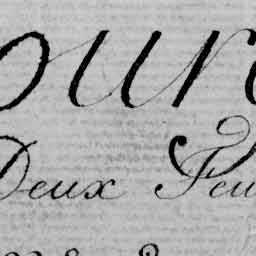 our
Deux Feu